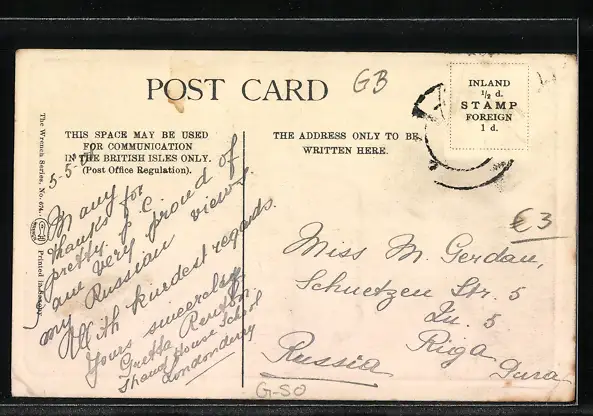 POST CARD
GB
INLAND
½ d.
STAMP
FOREIGN
1 d.
THIS SPACE MAY BE USED
FOR COMMUNICATION
IN THE BRITISH ISLES ONLY.
(Post Office Regulation).
THE ADDRESS ONLY TO BE
WRITTEN HERE.
The Wrench Series, No.
Printed in Saxony
5-5-
Many
thanks for
pretty p. c.
am very proud of
my Russian views.
With kindest regards.
Yours sincerely,
Gretta Renton.
House School
Londonderry
€3
Miss M. Gerdau,
Schuetzen Str. 5
Qu. 5
Riga
Russia
G-SO